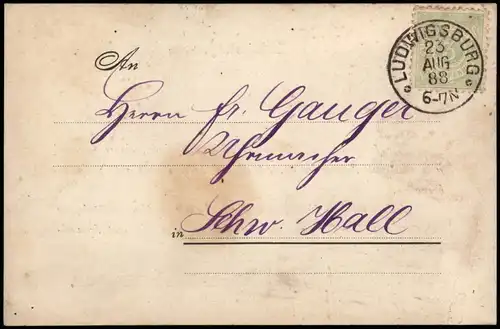 LUDWIGSBURG
23
AUG
88
6-7N
An
Herrn Fr. Gauger
Uhrmacher
in Schw. Hall